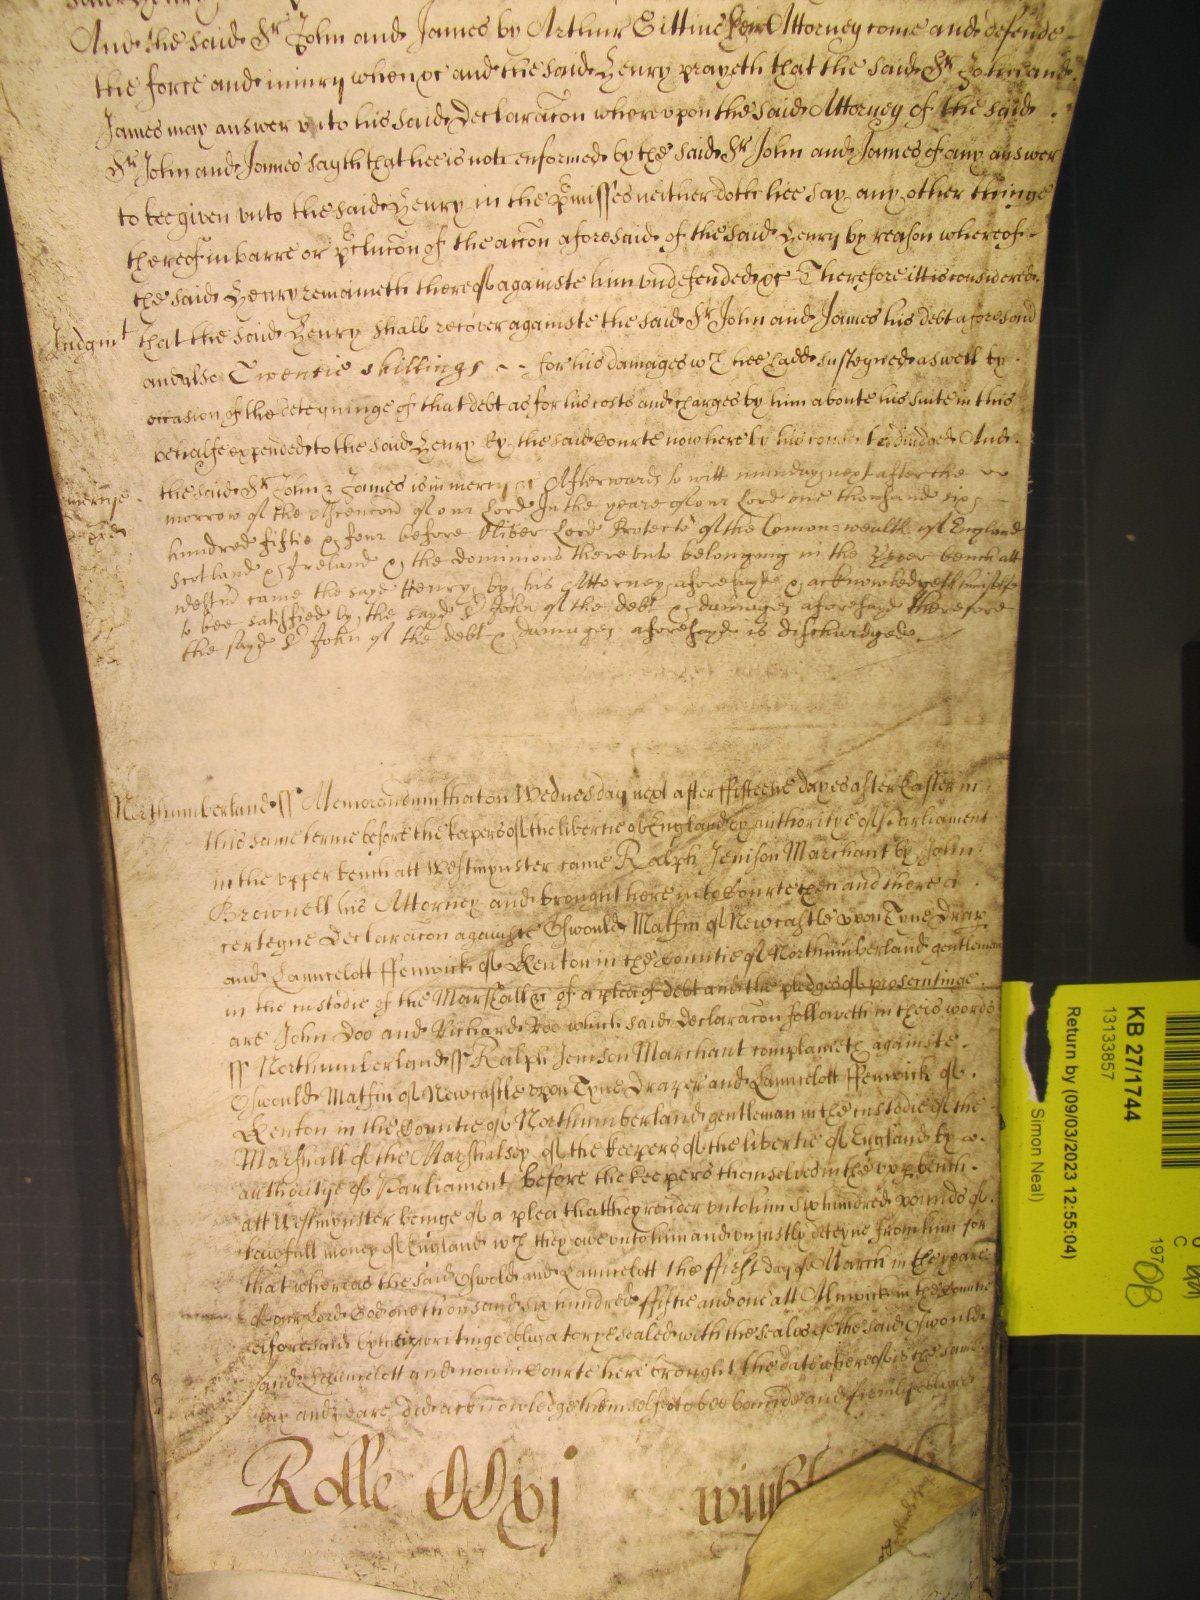 said Henry
And the said Sr John and James by Arthur Gittins their Attorney come and defende
the force and iniury when &c and the said Henry prayeth that the said Sr John and
James may answer vnto his said Declaracon wherevpon the said Attorney of the said
Sr John and James sayth that hee is not enformed by the said Sr John and James of any answer
to bee given vnto the said Henry in the pmisses neither doth hee say any other thinge
thereof in barre or pclucon of the accon aforesaid of the said Henry by reason whereof
the said Henry remaineth thereof againste him vndefended &c Therefore itt is considered
Judgmt that the said Henry shall recover againste the said Sr John and James his debt aforesaid
and alsoe Twentie shillings for his damages wch hee hadd susteyned aswell by
occasion of the deteyninge of that debt as for his costs and charges by him aboute his suite in this
behalfe expended to the said Henry by the said Courte now here by his consent adiudged And
the said Sr John & James is in mercy &c Afterwards to witt munday next after the
morrow of the Ascencon of our Lord In the yeare of our Lord one thousand six
hundred fiftie & four before Oliver Lord Protector of the Comon-wealth of England
Scotland & Ireland & the dominions therevnto belonging in the Vpper bench att
Westmr came the sayd Henry by his Attorney aforesayd & acknowledgeth himselfe
to bee satisfied by the sayd Sr John of the debt & damages aforesayd Therefore
the sayd Sr John of the debt & damages aforesayd is dischardged
Northumberland ss Memorandum that on Wednesday next after ffifteene dayes after Easter in
this same terme before the keepers of the libertie of England by authoritye of Parliament
in the vpper bench att Westmynster came Ralph Jenison Marchant by John
Brownell his Attorney and brought here into Courte then and there a
certeyne Declaracon againste Oswould Matfin of Newcastle vpon Tyne Drap
and Launcelott ffenwick of Kenton in the Countie of Northumberland gentleman
in the custodie of the Marshall &c of a plea of debt and the pledges of prosecutinge
are John Doo and Richard Roo which said Declaracon followeth in theis words
ss Northumberland ss Ralph Jenison Marchant complaineth againste
Oswould Matfin of Newcastle vpon Tyne Draper and Launcelott ffenwick of
Kenton in the Countie of Northumberland gentleman in the custodie of the
Marshall of the Marshalsey of the keepers of the libertie of England by
authoritye of Parliament before the keepers themselves in the vpp bench
att Westmynster beinge of a plea that they render vnto him six hundred pounds of
lawfull money of England wch they owe vnto him and vniustly deteyne from him for
that whereas the said Oswold and Launcelott the ffirst day of March in the yeare
of our Lord God one thousand six hundred ffiftie and one att Alnwick in the Countie
aforesaid by their writinge obligatorye sealed with the seales of the said Oswould
and Launcelott and now in Courte here brought the date whereof is the same
day and yeare did acknowledge themselfes to bee bounde and firmely
Rolle CCxj
KB 27/1744
13133857
Return by (09/03/2023 12:55:04)
Simon Neal)
197
C